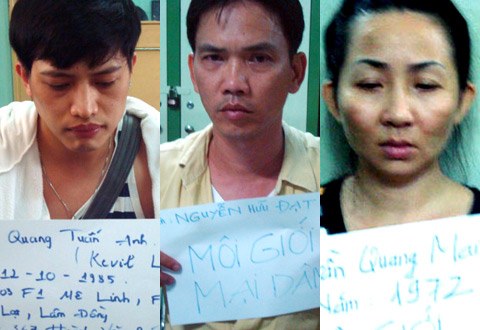 Quang Tuấn Anh
(Kevil L
12-10-1985
F1 Mê Linh, F
Lạt, Lâm Đồng
NGUYỄN HỮU ĐẠT
MÔI GIỚI
MẠI DÂM
Quang Mai
Năm: 1972
GIỚI